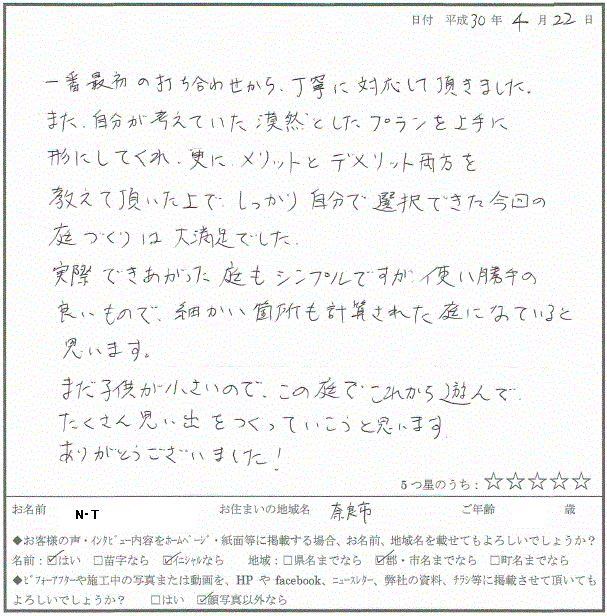 日付 平成30年 4月 22日
一番最初の打ち合わせから、丁寧に対応して頂きました。
また、自分が考えていた漠然としたプランを上手に
形にしてくれ、更に、メリットとデメリット両方を
教えて頂いた上で、しっかり自分で選択できた今回の
庭づくりは大満足でした。
実際できあがった庭もシンプルですが、使い勝手の
良いもので、細かい箇所も計算された庭になっていると
思います。
まだ子供が小さいので、この庭でこれから遊んで、
たくさん思い出をつくっていこうと思います
ありがとうございました！
5つ星のうち：☆☆☆☆☆
お名前 N-T お住まいの地域名 奈良市 ご年齢 歳
◆お客様の声・インタビュー内容をホームページ・紙面等に掲載する場合、お名前、地域名を載せてもよろしいでしょうか？
名前：☑はい □苗字なら ☑イニシャルなら 地域：□県名までなら ☑郡・市名までなら □町名までなら
◆ビフォーアフターや施工中の写真または動画を、HP や facebook、ニュースレター、弊社の資料、チラシ等に掲載させて頂いても
よろしいでしょうか？ □はい ☑顔写真以外なら